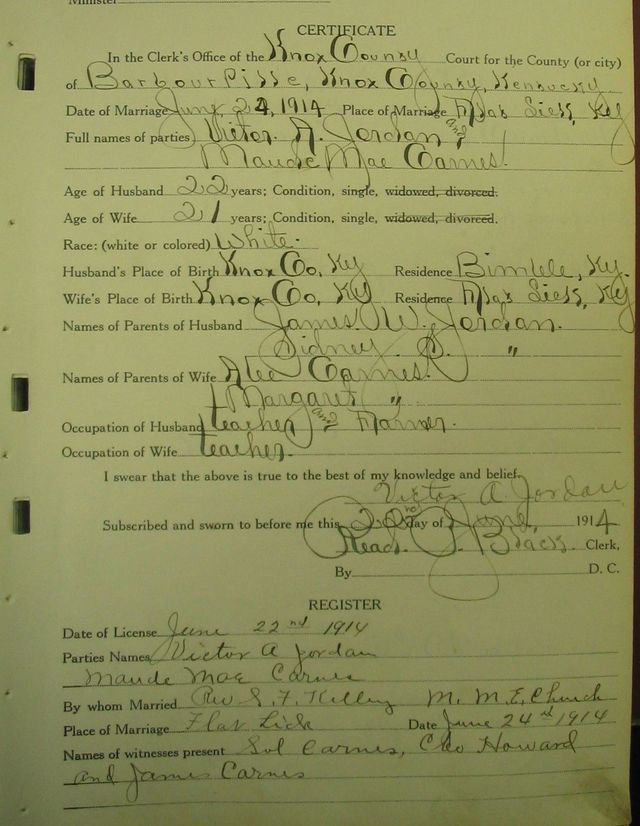 Minister
CERTIFICATE
In the Clerk's Office of the Knox County Court for the County (or city)
of Barbourville, Knox County, Kentucky
Date of Marriage June 24, 1914 Place of Marriage Flat Lick, Ky
Full names of parties Victor A. Jordan and
Maude Mae Carnes.
Age of Husband 22 years; Condition, single, widowed, divorced.
Age of Wife 21 years; Condition, single, widowed, divorced.
Race: (white or colored) White.
Husband's Place of Birth Knox Co, Ky Residence Bimble, Ky.
Wife's Place of Birth Knox Co, Ky Residence Flat Lick, Ky
Names of Parents of Husband James W. Jordan.
Sidney S. "
Names of Parents of Wife Carnes.
Margaret "
Occupation of Husband teacher and Farmer.
Occupation of Wife teacher.
I swear that the above is true to the best of my knowledge and belief.
Victor A. Jordan
Subscribed and sworn to before me this 22nd day of June, 1914
Read P. Black Clerk,
By D. C.
REGISTER
Date of License June 22nd 1914
Parties Names Victor A Jordan
Maude Mae Carnes
By whom Married Rev S. F. Kelley M. M. E. Church
Place of Marriage Flat Lick Date June 24th 1914
Names of witnesses present Sol Carnes, Howard
and James Carnes